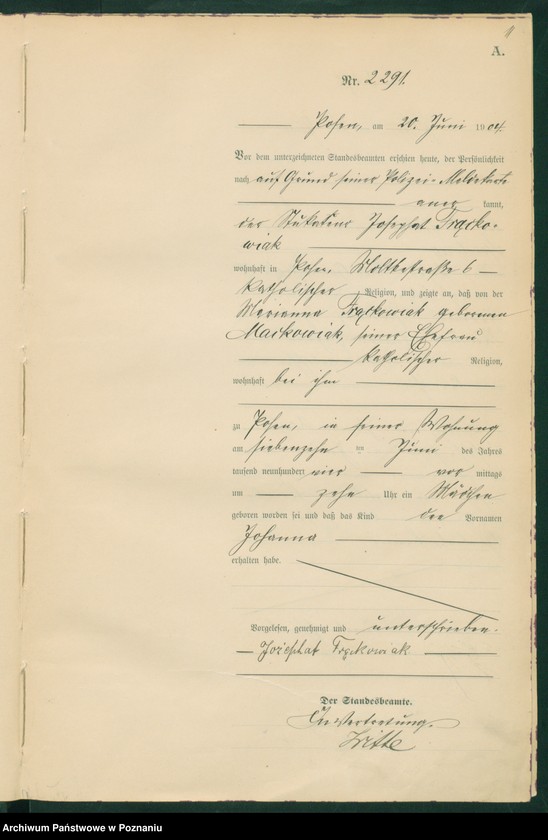 11
A.
Nr. 2291.
Posen, am 20. Juni 1904.
Vor dem unterzeichneten Standesbeamten erschien heute, der Persönlichkeit
nach auf Grund seiner Polizei-Meldekarte
aner kannt,
der Stukateur Josephat Frącko-
wiak
wohnhaft in Posen, Moltkestraße 6
katholischer Religion, und zeigte an, daß von der
Marianna Frąckowiak geborenen
Maćkowiak, seiner Ehefrau
katholischer Religion,
wohnhaft bei ihm
zu Posen, in seiner Wohnung
am siebenzehn ten Juni des Jahres
tausend neunhundert vier vor mittags
um zehn Uhr ein Mädchen
geboren worden sei und daß das Kind den Vornamen
Johanna
erhalten habe.
Vorgelesen, genehmigt und unterschrieben.
Frąckowiak
Der Standesbeamte.
In Vertretung.
Witte
Archiwum Państwowe w Poznaniu